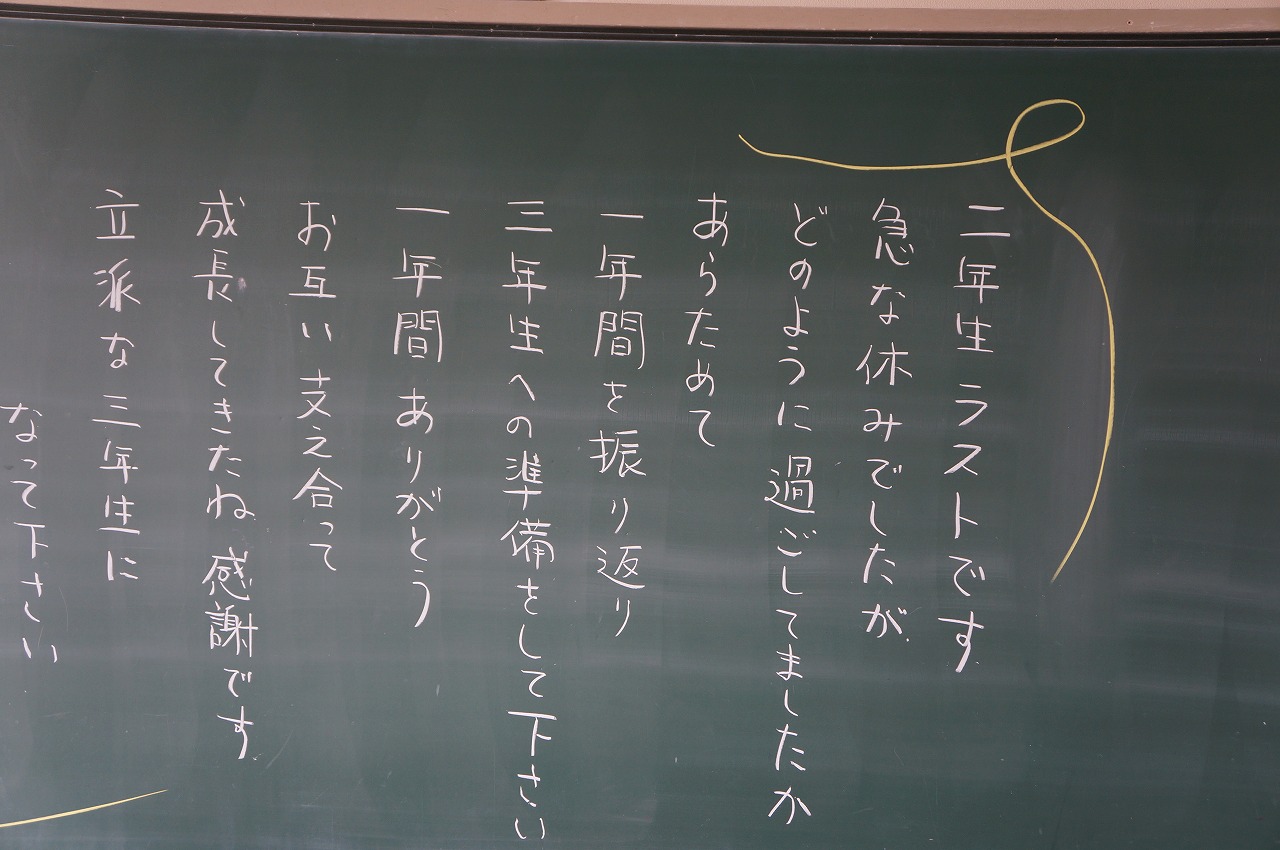 二年生ラストです
急な休みでしたが
どのように過ごしてましたか
あらためて
一年間を振り返り
三年生への準備をして下さい
一年間ありがとう
お互い支え合って
成長してきたね感謝です
立派な三年生に
なって下さい